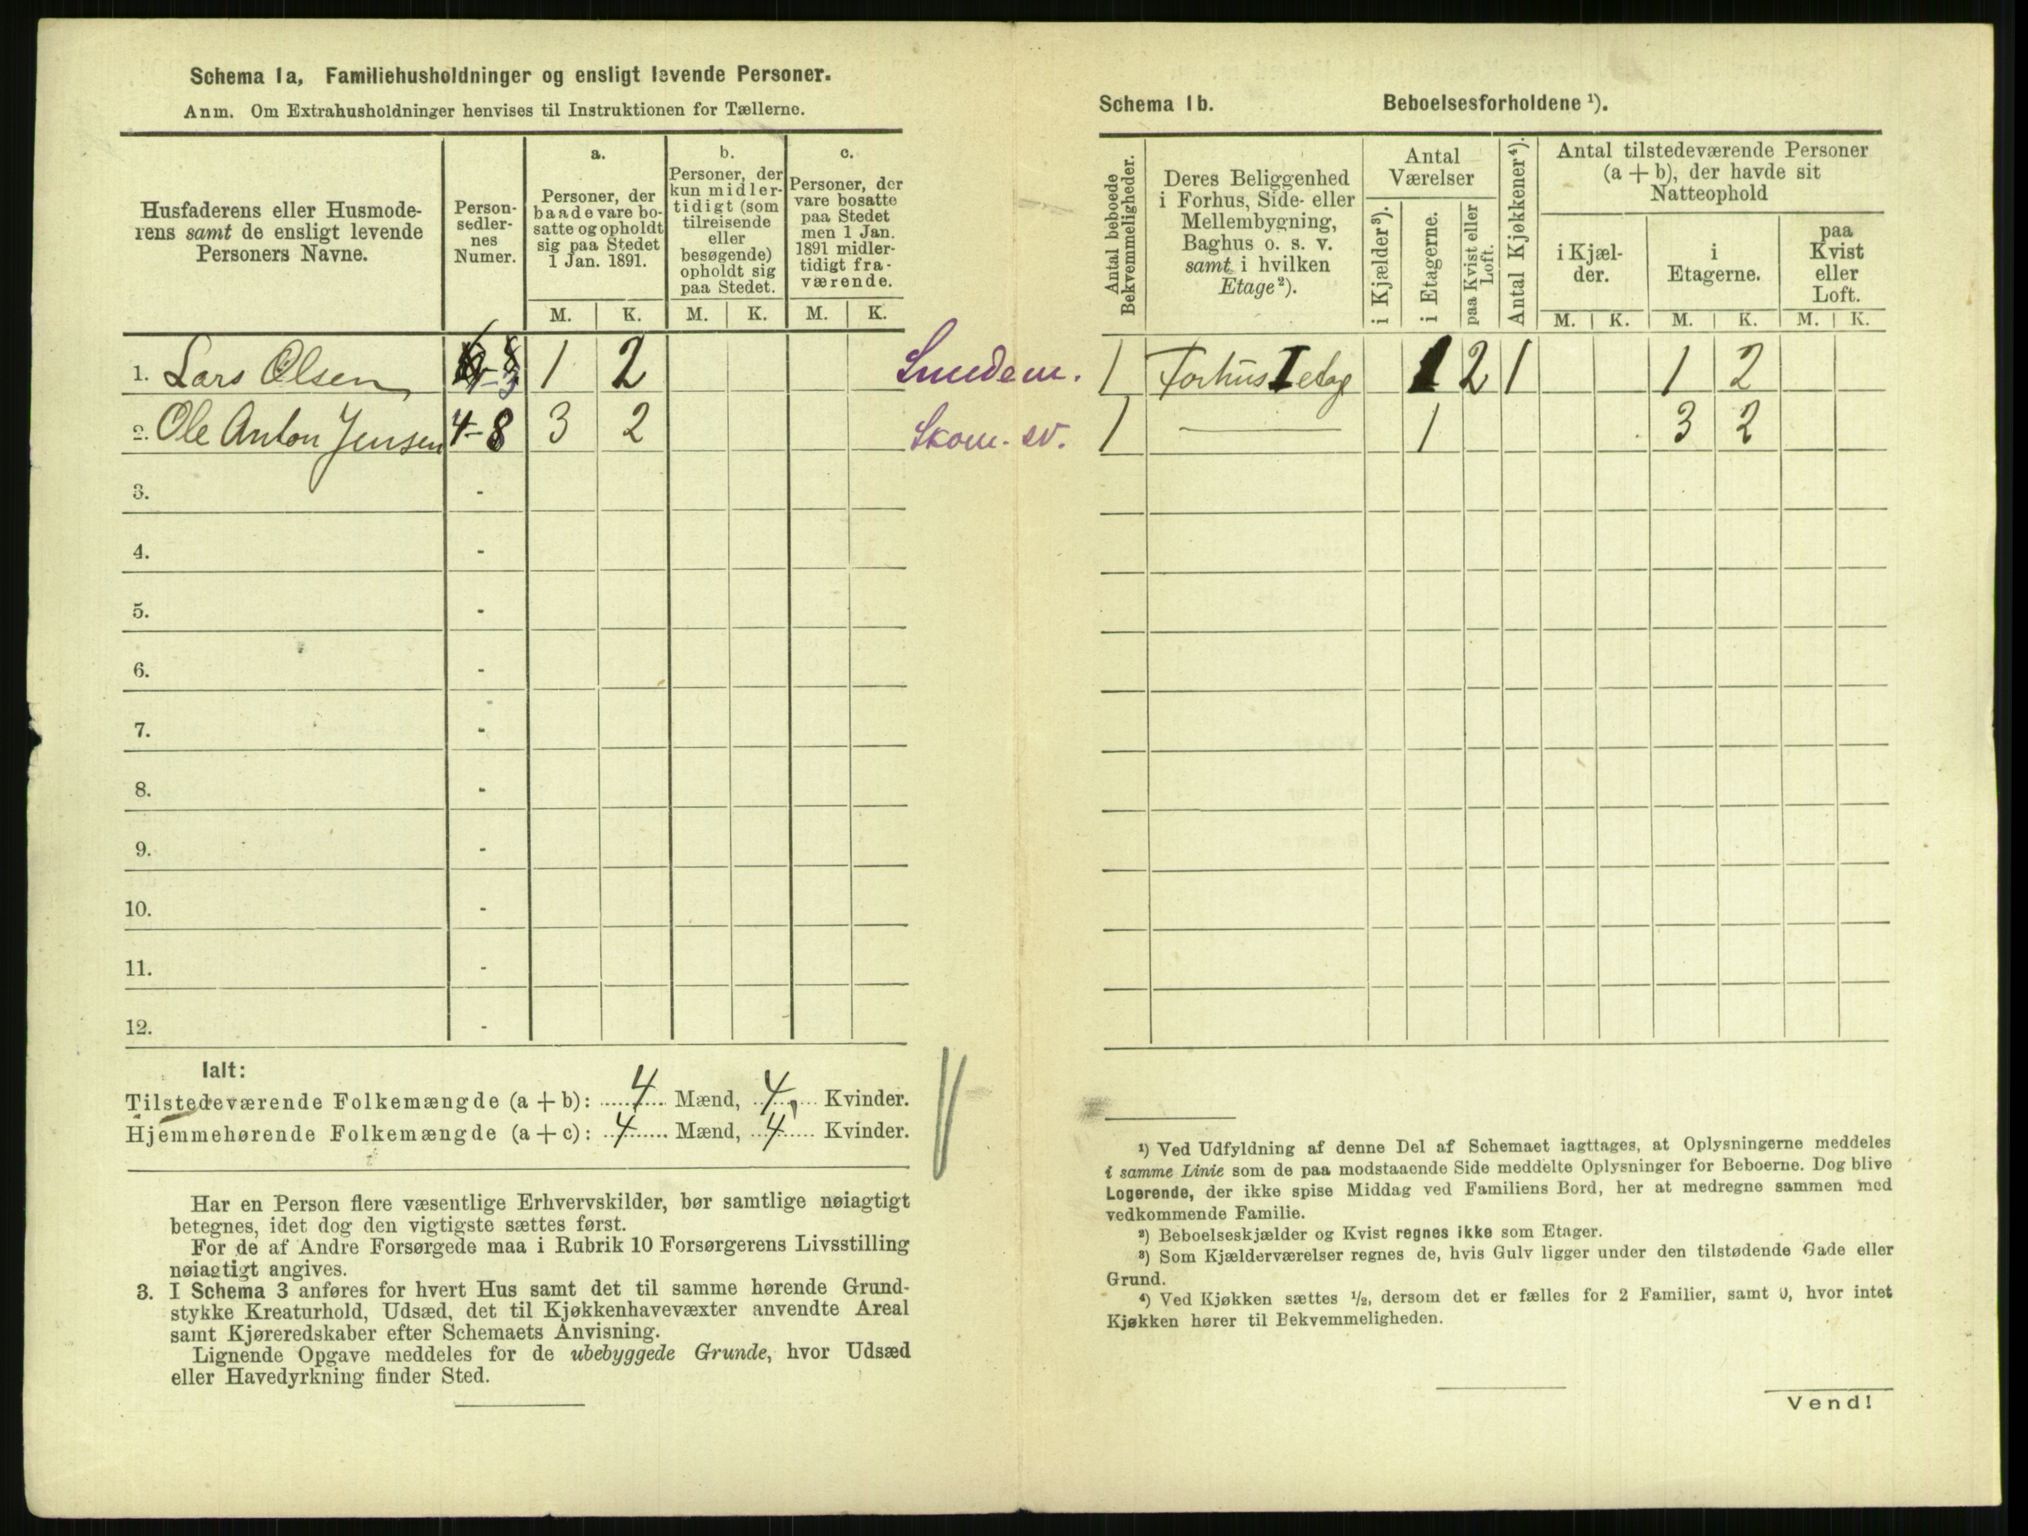 Schema 1a, Familiehusholdninger og ensligt levende Personer.
Anm. Om Extrahusholdninger henvises til Instruktionen for Tællerne.
Husfaderens eller Husmode-
rens samt de ensligt levende
Personers Navne.
Person-
sedler-
nes
Numer.
a.
Personer, der
baade vare bo-
satte og opholdt
sig paa Stedet
1 Jan. 1891.
b.
Personer, der
kun midler-
tidigt (som
tilreisende
eller
besøgende)
opholdt sig
paa Stedet.
c.
Personer, der
vare bosatte
paa Stedet
men 1 Jan.
1891 midler-
tidigt fra-
værende.
M. K. M. K. M. K.
1. Lars Olsen 1 2
2. Ole Anton Jensen 4-8 3 2 Skom. sv.
3. -
4. -
5. -
6. -
7. -
8. -
9. -
10. -
11. -
12. -
Ialt:
Tilstedeværende Folkemængde (a + b): 4 Mænd, 4 Kvinder.
Hjemmehørende Folkemængde (a + c): 4 Mænd, 4 Kvinder.
Har en Person flere væsentlige Erhvervskilder, bør samtlige nøiagtigt
betegnes, idet dog den vigtigste sættes først.
For de af Andre Forsørgede maa i Rubrik 10 Forsørgerens Livsstilling
nøiagtigt angives.
3. I Schema 3 anføres for hvert Hus samt det til samme hørende Grund-
stykke Kreaturhold, Udsæd, det til Kjøkkenhavevæxter anvendte Areal
samt Kjøreredskaber efter Schemaets Anvisning.
Lignende Opgave meddeles for de ubebyggede Grunde, hvor Udsæd
eller Havedyrkning finder Sted.
Schema 1b. Beboelsesforholdene ¹).
Antal beboede
Bekvemmeligheder.
Deres Beliggenhed
i Forhus, Side- eller
Mellembygning,
Baghus o. s. v.
samt i hvilken
Etage²).
Antal
Værelser
i Kjælder³).
i Etagerne.
paa Kvist eller
Loft.
Antal Kjøkkener⁴).
Antal tilstedeværende Personer
(a + b), der havde sit
Natteophold
i Kjæl-
der.
i
Etagerne.
paa
Kvist
eller
Loft.
M. K. M. K. M. K.
1 Forhus I etag 1 2 1 1 2
1 — 1 3 2
¹) Ved Udfyldning af denne Del af Schemaet iagttages, at Oplysningerne meddeles
i samme Linie som de paa modstaaende Side meddelte Oplysninger for Beboerne. Dog blive
Logerende, der ikke spise Middag ved Familiens Bord, her at medregne sammen med
vedkommende Familie.
²) Beboelseskjælder og Kvist regnes ikke som Etager.
³) Som Kjælderværelser regnes de, hvis Gulv ligger under den tilstødende Gade eller
Grund.
⁴) Ved Kjøkken sættes ½, dersom det er fælles for 2 Familier, samt 0, hvor intet
Kjøkken hører til Bekvemmeligheden.
Vend!